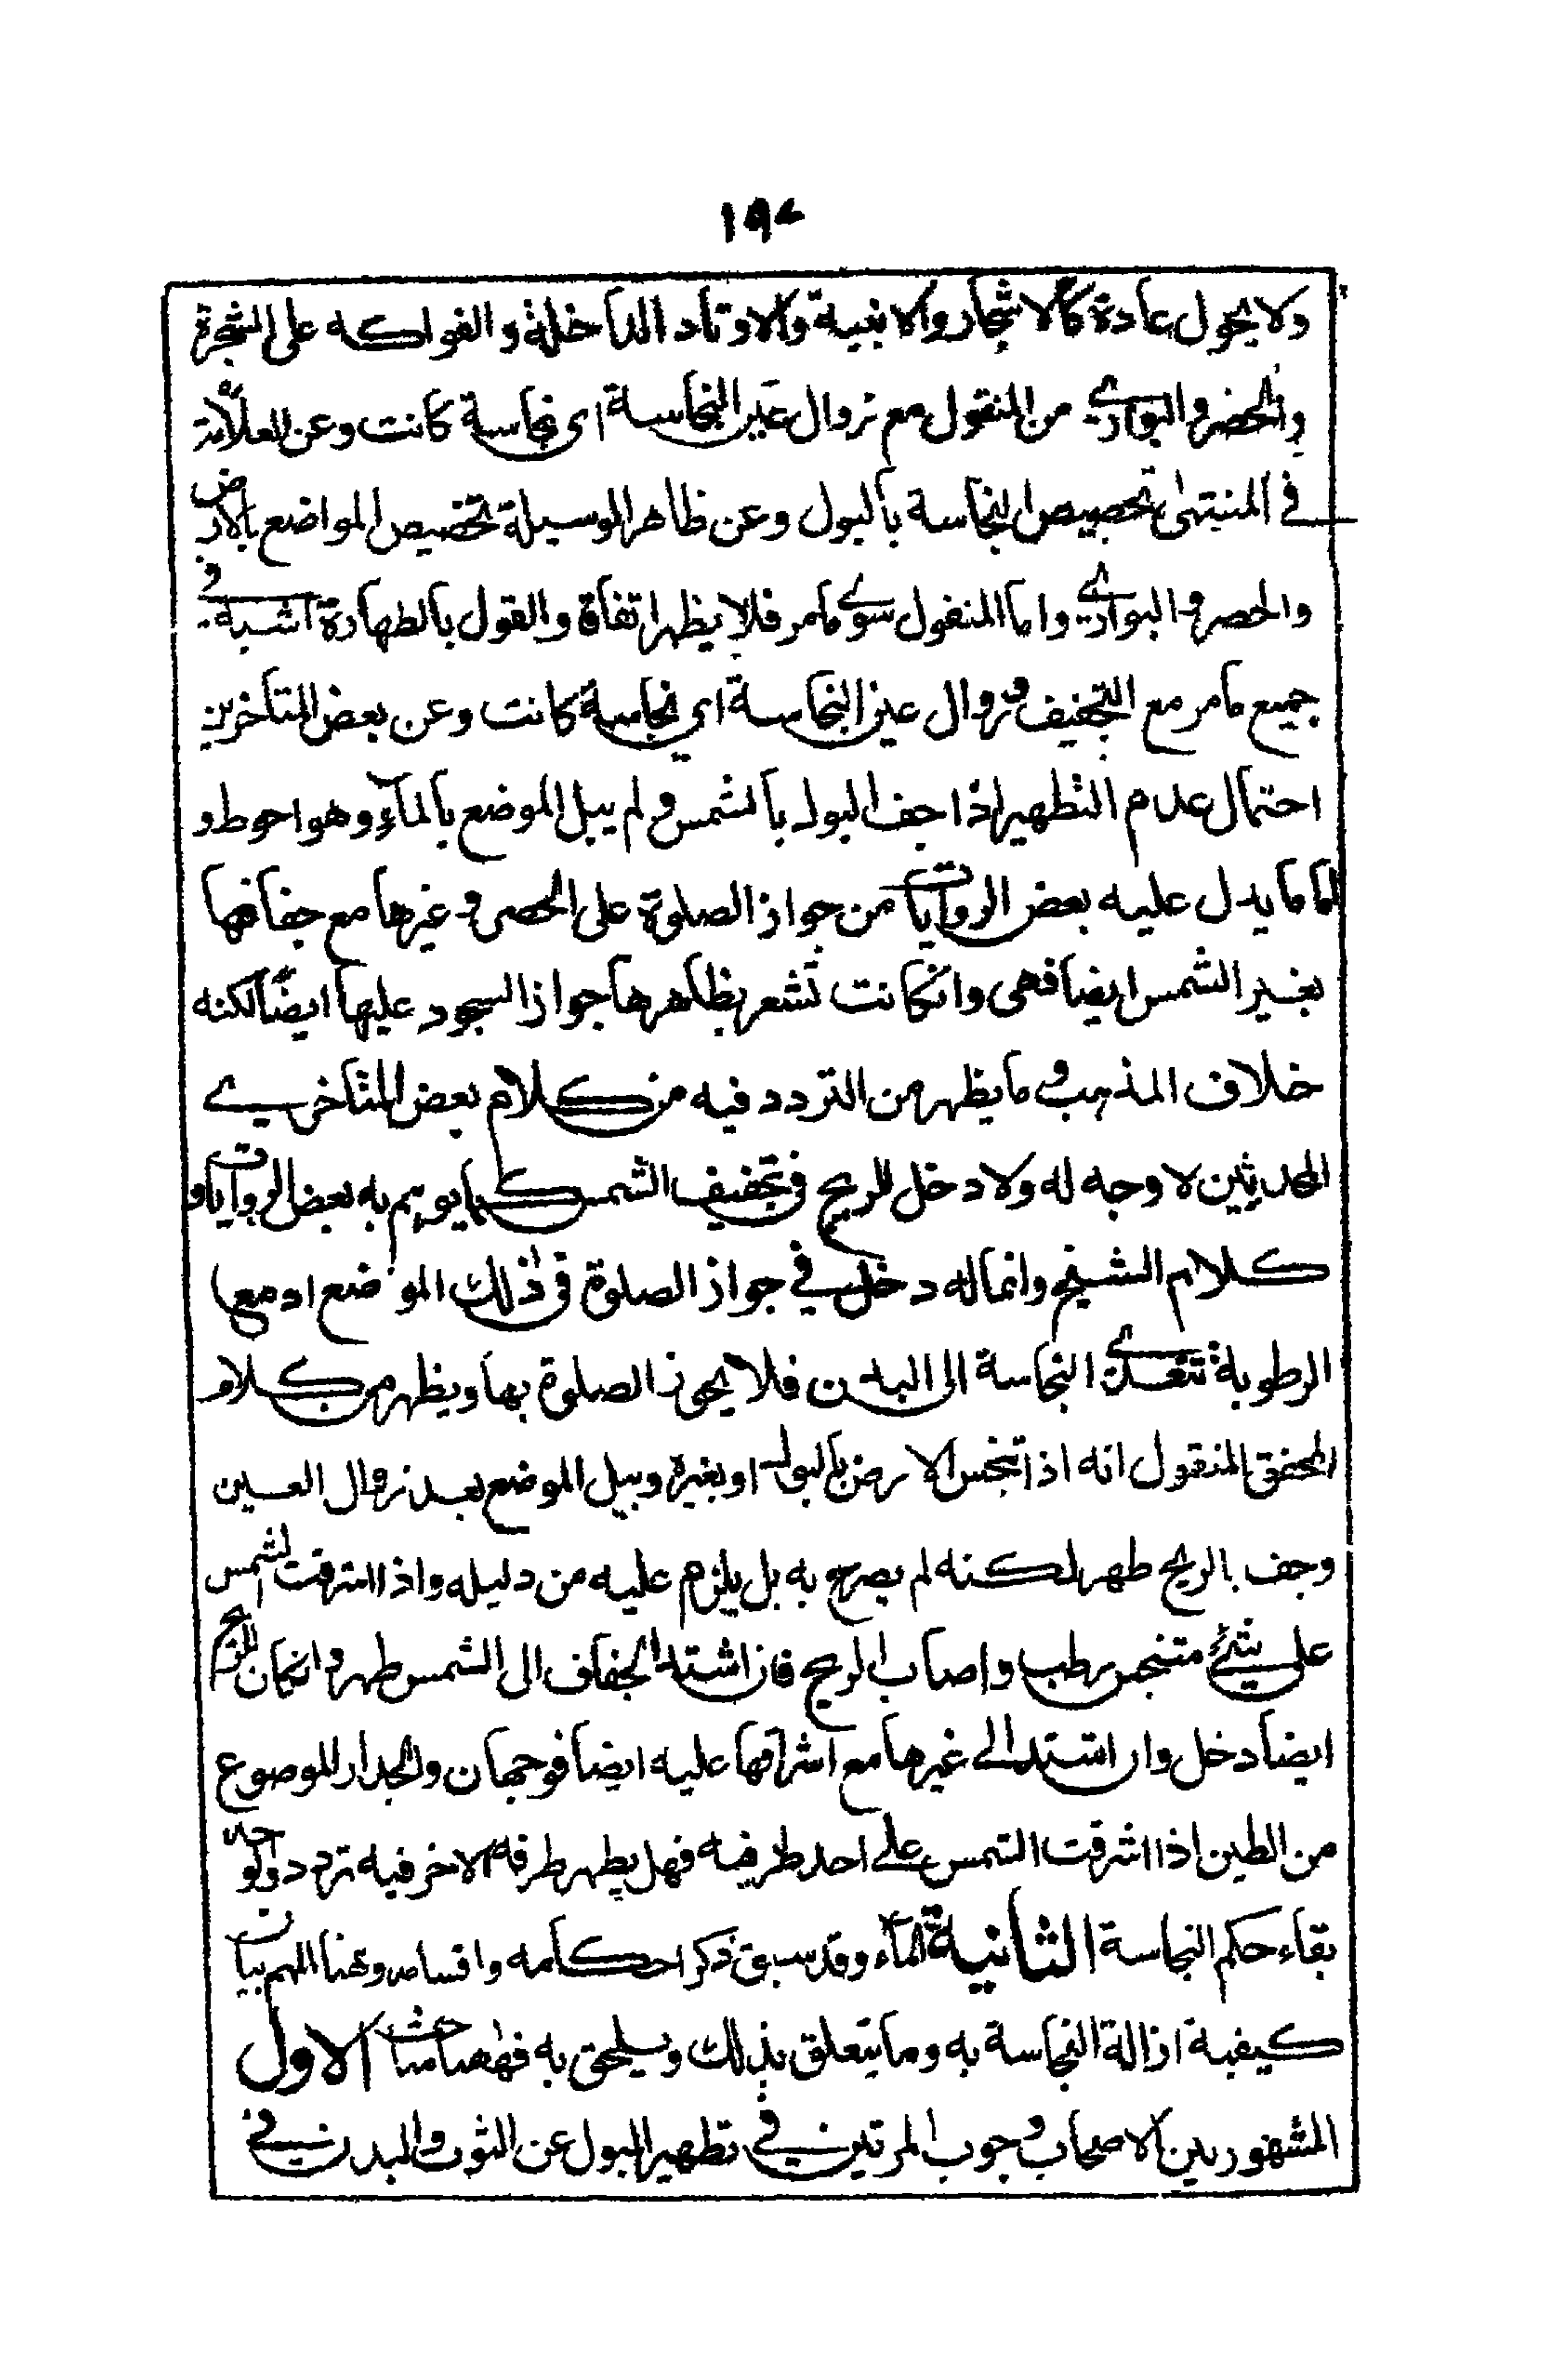 ١٩٤
ولا يحول عادة كالاشجار والابنية والاوتاد الداخلة والفواكه على الشجرة
والحصر والبواري من المنقول مع زوال عين النجاسة اى نجاسة كانت وعن العلامة
في المنتهى تخصيص النجاسة بالبول وعن ظاهر الوسيلة تخصيص المواضع بالارض
والحصر و البواري واما المنقول سوى مامر فلا يظهر اتفاق والقول بالطهارة اشبه في
جميع مامر مع التجفيف وزوال عين النجاسة اي نجاسة كانت وعن بعض المتاخرين
احتمال عدم التطهير اذا جف البول بالشمس ولم يبل الموضع بالماء وهو احوط و
اما ما يدل عليه بعض الروايات من جواز الصلوة على الحصر و غيرها مع جفافها
بغير الشمس ايضا فهى وانكانت تشعر بظاهرها جواز السجود عليها ايضا لكنه
خلاف المذهب و ما يظهر من التردد فيه من كلام بعض المتاخري
المحدثين لا وجه له ولا دخل للريح في تجفيف الشمس كما يوهم به بعض الروايات و
كلام الشيخ وانما له دخل في جواز الصلوة في ذلك الموضع اذ مع
الرطوبة تتعدى النجاسة الى البدن فلا يجوز الصلوة بها ويظهر من كلام
المحقق المنقول انه اذا تنجس الارض بالبول او بغيره وبيل الموضع بعد زوال العين
وجف بالريح طهر لكنه لم يصرح به بل يلزم عليه من دليله واذا اشرقت الشمس
على شئ متنجس رطب واصاب الريح فان اشتد الجفاف الى الشمس طهر وانكان للريح
ايضا دخل وان اشتد الى غيرها مع اشراقها عليه ايضا فوجهان والجدار الموضوع
من الطين اذا اشرقت الشمس على احد طرفيه فهل يطهر طرفه الاخر فيه تردد
بقاء حكم النجاسة الثانية الماء وقد سبق ذكر احكامه واقسامه وهنا المهم بيان
كيفية ازالة النجاسة به وما يتعلق بذلك ويلحق به فههنا مباحث الاول
المشهور بين الاصحاب وجوب المرتين في تطهير البول عن الثوب والبدن في